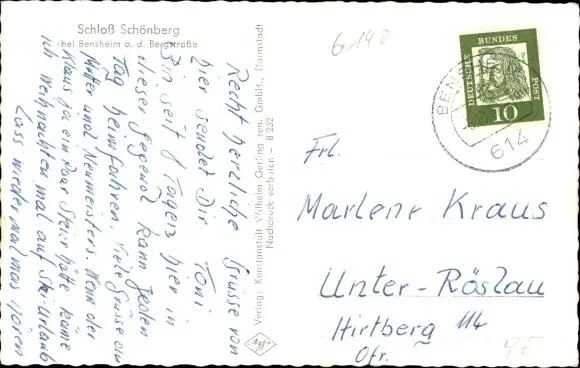 Schloß Schönberg
bei Bensheim a. d. Bergstraße
Recht herzliche Grüsse von
hier sendet Dir Toni
Bin seit 8 Tagen hier in
dieser Gegend kann jeden
Tag heimfahren. Viele Grüsse an
Mutter und Neumeisters. Wenn der
Klaus ja ein Paar Steir hätte käme
ich Weihnachten mal auf Skiurlaub
Lass wieder mal was hören
Verlag: Kunstanstalt Wilhelm Gerling sen. GmbH., Darmstadt
Nachdruck verboten - B 232
6140
DEUTSCHE BUNDESPOST
10
BEN
614
Frl.
Marlene Kraus
Unter-Röslau
Hirtberg 114
Ofr.